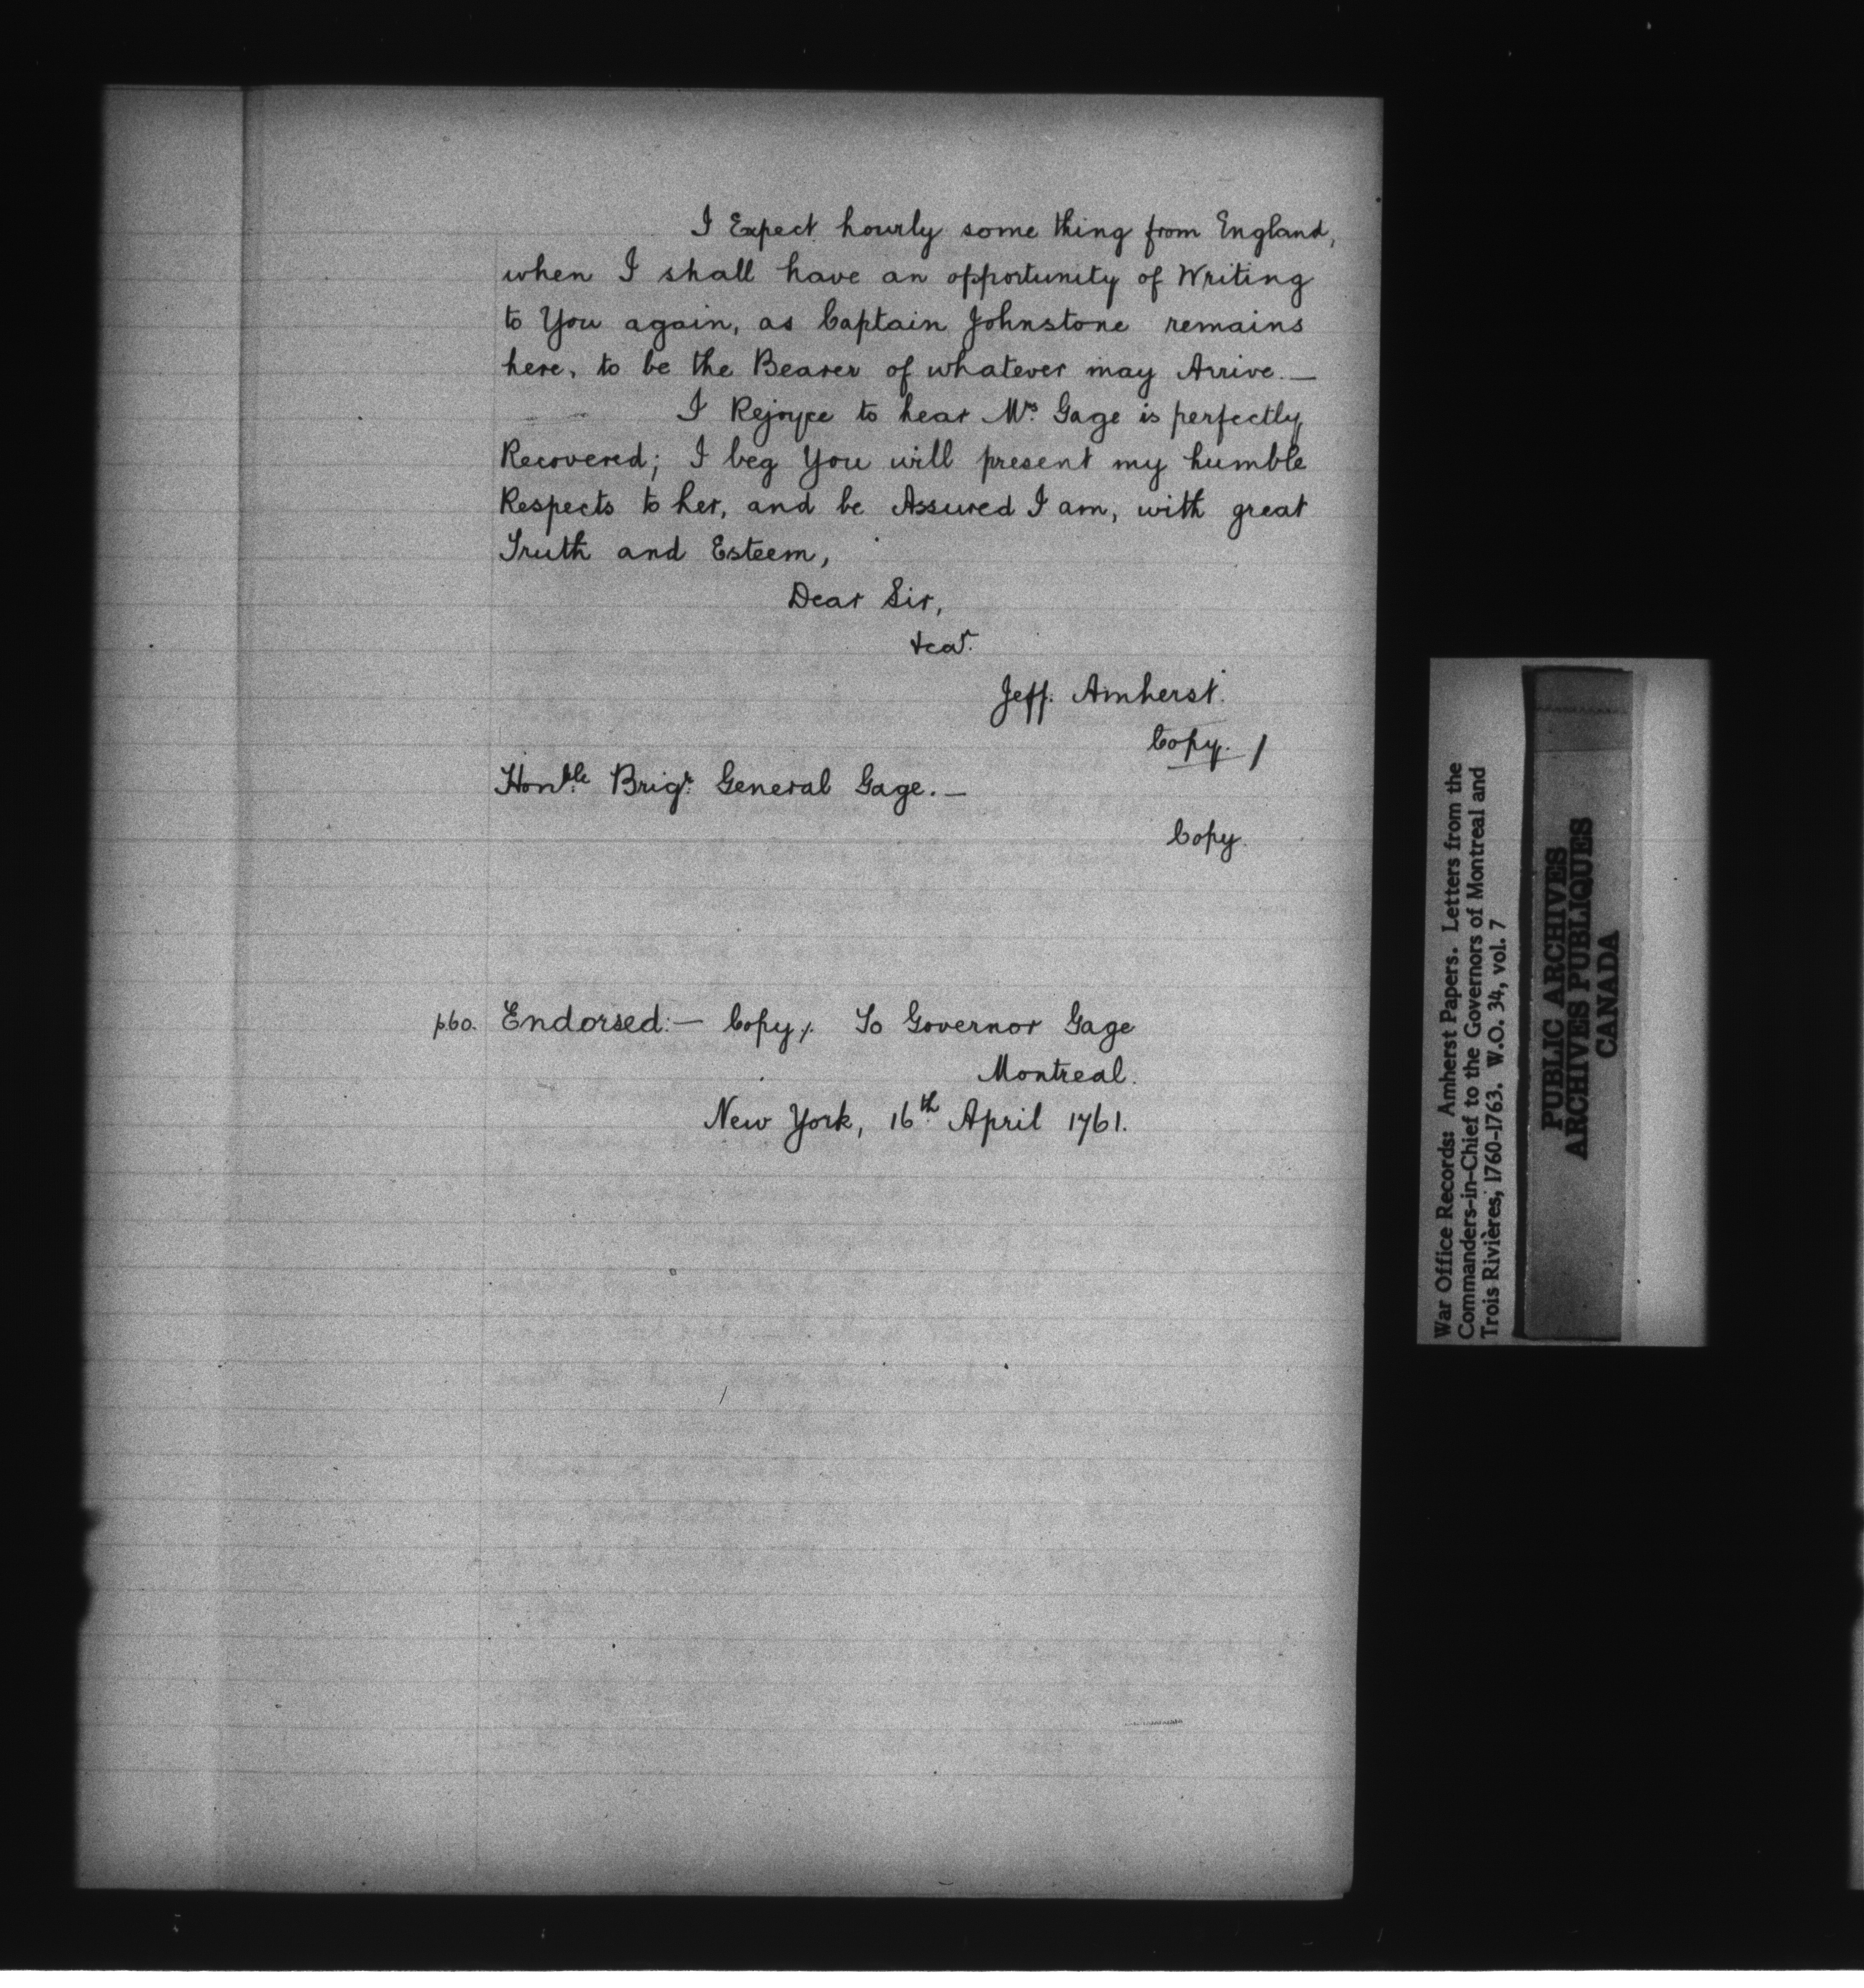 I Expect hourly some thing from England,
when I shall have an opportunity of Writing
to You again, as Captain Johnstone remains
here, to be the Bearer of whatever may Arrive. —
I Rejoyce to hear Mrs. Gage is perfectly
Recovered; I beg You will present my humble
Respects to her, and be Assured I am, with great
Truth and Esteem,
Dear Sir,
&ca.
Jeff. Amherst.
Copy. /
Honble. Brigr. General Gage. —
Copy.
p60. Endorsed:— Copy/. To Governor Gage
Montreal.
New York, 16th. April 1761.
War Office Records: Amherst Papers. Letters from the
Commanders-in-Chief to the Governors of Montreal and
Trois Rivières, 1760-1763. W.O. 34, vol. 7
PUBLIC ARCHIVES
ARCHIVES PUBLIQUES
CANADA